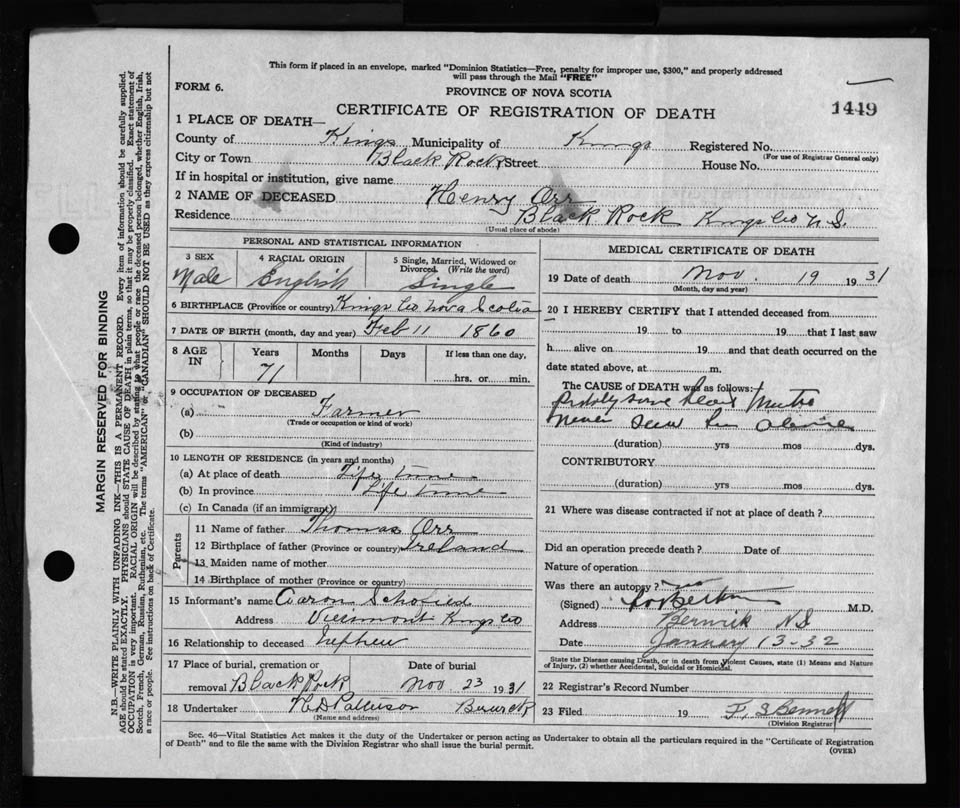 This form if placed in an envelope, marked "Dominion Statistics—Free, penalty for improper use, $300," and properly addressed
will pass through the Mail "FREE"
FORM 6.
PROVINCE OF NOVA SCOTIA
CERTIFICATE OF REGISTRATION OF DEATH
1449
1 PLACE OF DEATH—
County of Kings Municipality of Kings Registered No.
(For use of Registrar General only)
City or Town Black Rock Street House No.
If in hospital or institution, give name
2 NAME OF DECEASED Henry Orr
Residence Black Rock Kings Co N.S.
(Usual place of abode)
PERSONAL AND STATISTICAL INFORMATION
3 SEX Male
4 RACIAL ORIGIN English
5 Single, Married, Widowed or Divorced. (Write the word) Single
6 BIRTHPLACE (Province or country) Kings Co Nova Scotia
7 DATE OF BIRTH (month, day and year) Feb 11 1860
8 AGE IN Years 71 Months Days If less than one day, hrs. or min.
9 OCCUPATION OF DECEASED
(a) Farmer
(Trade or occupation or kind of work)
(b)
(Kind of industry)
10 LENGTH OF RESIDENCE (in years and months)
(a) At place of death Life time
(b) In province Life time
(c) In Canada (if an immigrant)
Parents
11 Name of father Thomas Orr
12 Birthplace of father (Province or country) Ireland
13 Maiden name of mother
14 Birthplace of mother (Province or country)
15 Informant's name Aaron Schofield
Address Viewmont Kings Co
16 Relationship to deceased nephew
17 Place of burial, cremation or removal Black Rock
Date of burial Nov 23 1931
18 Undertaker Patterson Berwick
(Name and address)
MEDICAL CERTIFICATE OF DEATH
19 Date of death Nov. 19 1931
(Month, day and year)
20 I HEREBY CERTIFY that I attended deceased from
19 to 19 that I last saw
h alive on 19 and that death occurred on the
date stated above, at m.
The CAUSE OF DEATH was as follows:
never seen alive
(duration) yrs mos dys.
CONTRIBUTORY
(duration) yrs mos dys.
21 Where was disease contracted if not at place of death?
Did an operation precede death? Date of
Nature of operation
Was there an autopsy? no
(Signed) M.D.
Address Berwick NS
Date January 13-32
State the Disease causing Death, or in death from Violent Causes, state (1) Means and Nature
of Injury, (2) whether Accidental, Suicidal or Homicidal.
22 Registrar's Record Number
23 Filed 19 F S Bennett
(Division Registrar)
Sec. 46—Vital Statistics Act makes it the duty of the Undertaker or person acting as Undertaker to obtain all the particulars required in the "Certificate of Registration
of Death" and to file the same with the Division Registrar who shall issue the burial permit.
(OVER)
MARGIN RESERVED FOR BINDING
N.B.—WRITE PLAINLY WITH UNFADING INK—THIS IS A PERMANENT RECORD. Every item of information should be carefully supplied.
AGE should be stated EXACTLY. PHYSICIANS should STATE CAUSE OF DEATH in plain terms, so that it may be properly classified. Exact statement of
OCCUPATION is very important. RACIAL ORIGIN will be described by stating to what people or race the deceased person belonged, whether English, Irish,
Scotch, French, German, Russian, Ruthenian, etc. The terms "AMERICAN" or "CANADIAN" SHOULD NOT BE USED as they express citizenship but not
a race or people. See instructions on back of Certificate.